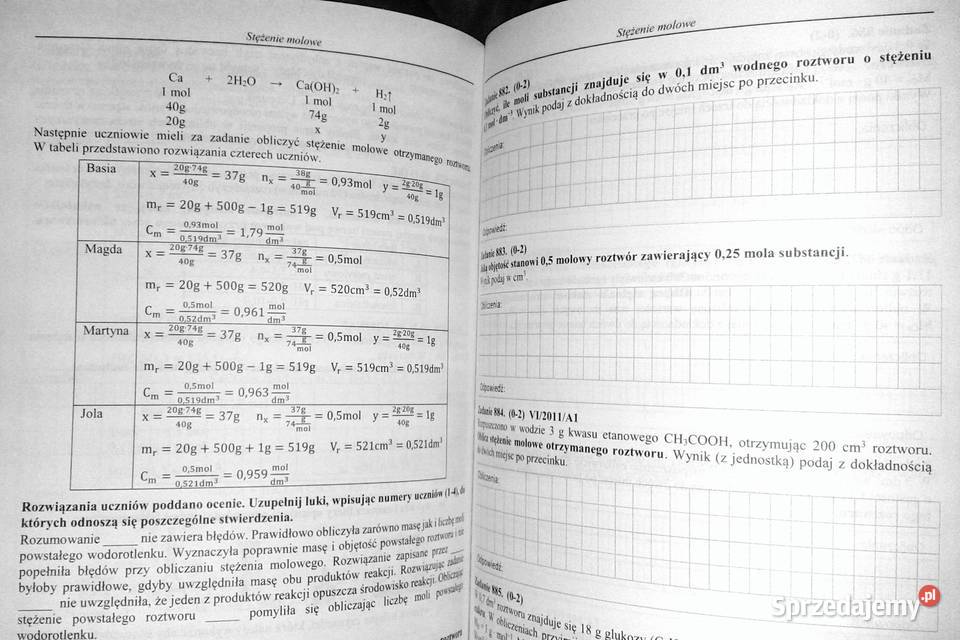 Stężenie molowe
Ca + 2H₂O → Ca(OH)₂ + H₂↑
1 mol 1 mol 1 mol
40g 74g 2g
20g x y
Następnie uczniowie mieli za zadanie obliczyć stężenie molowe otrzymanego roztworu.
W tabeli przedstawiono rozwiązania czterech uczniów.
Basia
x = 20g·74g/40g = 37g nₓ = 38g/40 g/mol = 0,93mol y = 2g·20g/40g = 1g
mᵣ = 20g + 500g − 1g = 519g Vᵣ = 519cm³ = 0,519dm³
Cₘ = 0,93mol/0,519dm³ = 1,79 mol/dm³
Magda
x = 20g·74g/40g = 37g nₓ = 37g/74 g/mol = 0,5mol
mᵣ = 20g + 500g = 520g Vᵣ = 520cm³ = 0,52dm³
Cₘ = 0,5mol/0,52dm³ = 0,961 mol/dm³
Martyna
x = 20g·74g/40g = 37g nₓ = 37g/74 g/mol = 0,5mol y = 2g·20g/40g = 1g
mᵣ = 20g + 500g − 1g = 519g Vᵣ = 519cm³ = 0,519dm³
Cₘ = 0,5mol/0,519dm³ = 0,963 mol/dm³
Jola
x = 20g·74g/40g = 37g nₓ = 37g/74 g/mol = 0,5mol y = 2g·20g/40g = 1g
mᵣ = 20g + 500g + 1g = 519g Vᵣ = 521cm³ = 0,521dm³
Cₘ = 0,5mol/0,521dm³ = 0,959 mol/dm³
Rozwiązania uczniów poddano ocenie. Uzupełnij luki, wpisując numery uczniów (1-4), do
których odnoszą się poszczególne stwierdzenia.
Rozumowanie _____ nie zawiera błędów. Prawidłowo obliczyła zarówno masę jak i liczbę moli
powstałego wodorotlenku. Wyznaczyła poprawnie masę i objętość powstałego roztworu i nie
popełniła błędów przy obliczaniu stężenia molowego. Rozwiązanie zapisane przez _____
byłoby prawidłowe, gdyby uwzględniła masę obu produktów reakcji. Rozwiązując zadanie
_____ nie uwzględniła, że jeden z produktów reakcji opuszcza środowisko reakcji. Obliczając
stężenie powstałego roztworu _____ pomyliła się obliczając liczbę moli powstałego
wodorotlenku.
Stężenie molowe
Zadanie 882. (0-2)
ile moli substancji znajduje się w 0,1 dm³ wodnego roztworu o stężeniu
mol·dm⁻³. Wynik podaj z dokładnością do dwóch miejsc po przecinku.
Obliczenia:
Odpowiedź:
Zadanie 883. (0-2)
Jaką objętość stanowi 0,5 molowy roztwór zawierający 0,25 mola substancji.
Wynik podaj w cm³.
Obliczenia:
Odpowiedź:
Zadanie 884. (0-2) VI/2011/A1
Rozpuszczono w wodzie 3 g kwasu etanowego CH₃COOH, otrzymując 200 cm³ roztworu.
Oblicz stężenie molowe otrzymanego roztworu. Wynik (z jednostką) podaj z dokładnością
do dwóch miejsc po przecinku.
Obliczenia:
Odpowiedź:
Zadanie 885. (0-2)
W 0,7 dm³ roztworu znajduje się 18 g glukozy
W obliczeniach
Sprzedajemy.pl